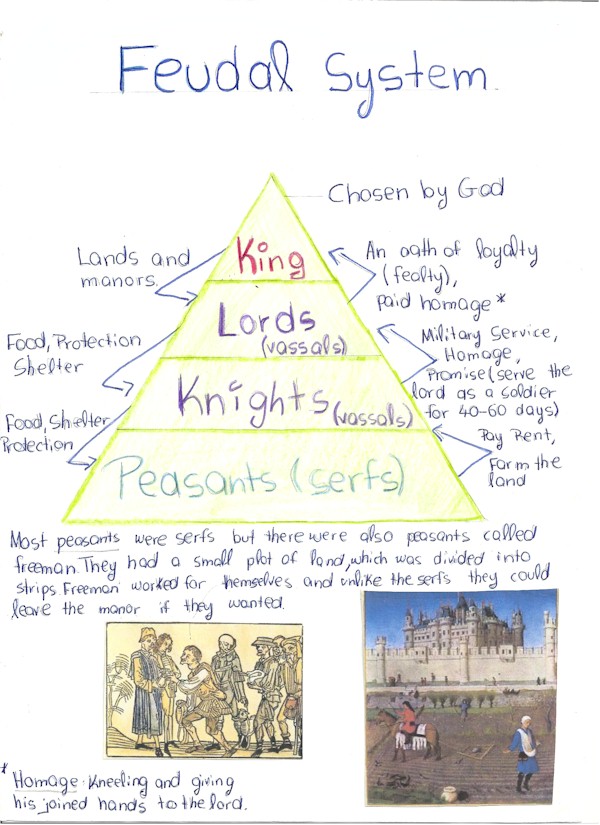 Feudal System.
Chosen by God
King
Lands and
manors.
An oath of loyalty
(fealty),
paid homage*
Lords
(vassals)
Food, Protection
Shelter
Military Service,
Homage,
Promise (serve the
lord as a soldier
for 40-60 days)
Knights
(vassals)
Food, Shelter
Protection
Pay Rent,
Farm the
land
Peasants (serfs)
Most peasants were serfs but there were also peasants called
freeman. They had a small plot of land, which was divided into
strips. Freeman worked for themselves and unlike the serfs they could
leave the manor if they wanted.
* Homage: Kneeling and giving
his joined hands to the lord.